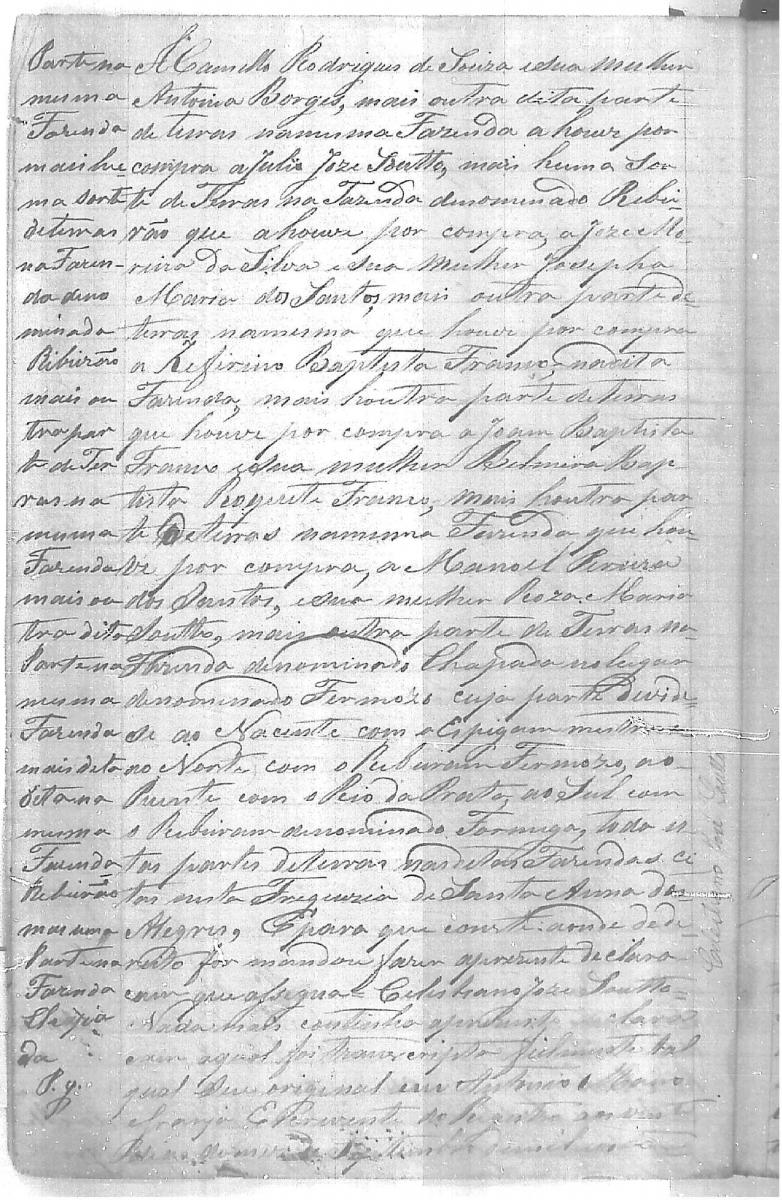 Parte na
mesma
Fazenda
mais hu
ma sorte
de terras
na Fazen-
da deno
minada
Ribeirão
mais ou
tra par
te de Ter
ras na
mesma
Fazenda
mais ou
tra dita
Parte na
mesma
Fazenda
mais dita
dita na
mesma
Fazenda
Ribeirão
mais uma
Parte na
Fazenda
Chapa
da
P. g.
A Camillo Rodrigues de Souza e sua mulher
Antonia Borges, mais outra dita parte
de terras na mesma Fazenda a houve por
compra a Julio Joze Soutto, mais huma Sor
te de Terras na Fazenda denominado Ribei-
rão que a houve por compra, a Joze Mo-
reira da Silva e sua mulher Josepha
Maria dos Santos, mais outra parte de
terras, na mesma que houve por compra
a Zeferino Baptista Franco, na dita
Fazenda, mais houtra parte de terras
que houve por compra a Joam Baptista
Franco e sua mulher Belmira Bap
tista Roquete Franco, mais houtra par
te de terras na mesma Fazenda que hou-
ve por compra, a Manoel Pereira
dos Santos, e sua mulher Roza Maria
Soutto, mais outra parte de Terras na
Fazenda denominado Chapada no lugar
denominado Fermozo cuja parte Devide-
se ao Nacente com o Espigam mestre e
ao Norte com o Ribeiram Fermozo, ao
Puente com o Rio da Prata, ao Sul com
o Ribeiram denominado Formiga, todo es
tas partes de terras nas ditas Fazendas ci
tas nesta Freguezia de Santa Anna dos
Alegres, E para que conste aonde de de-
reito for mandou fazer aprezente declara
cam que assegna = Celestiano Joze Soutto =
Nada mais continha aprezente declara
cam aqual foi transcripta fielmente tal
qual seu original eu Antonio
do Registro aos vinte